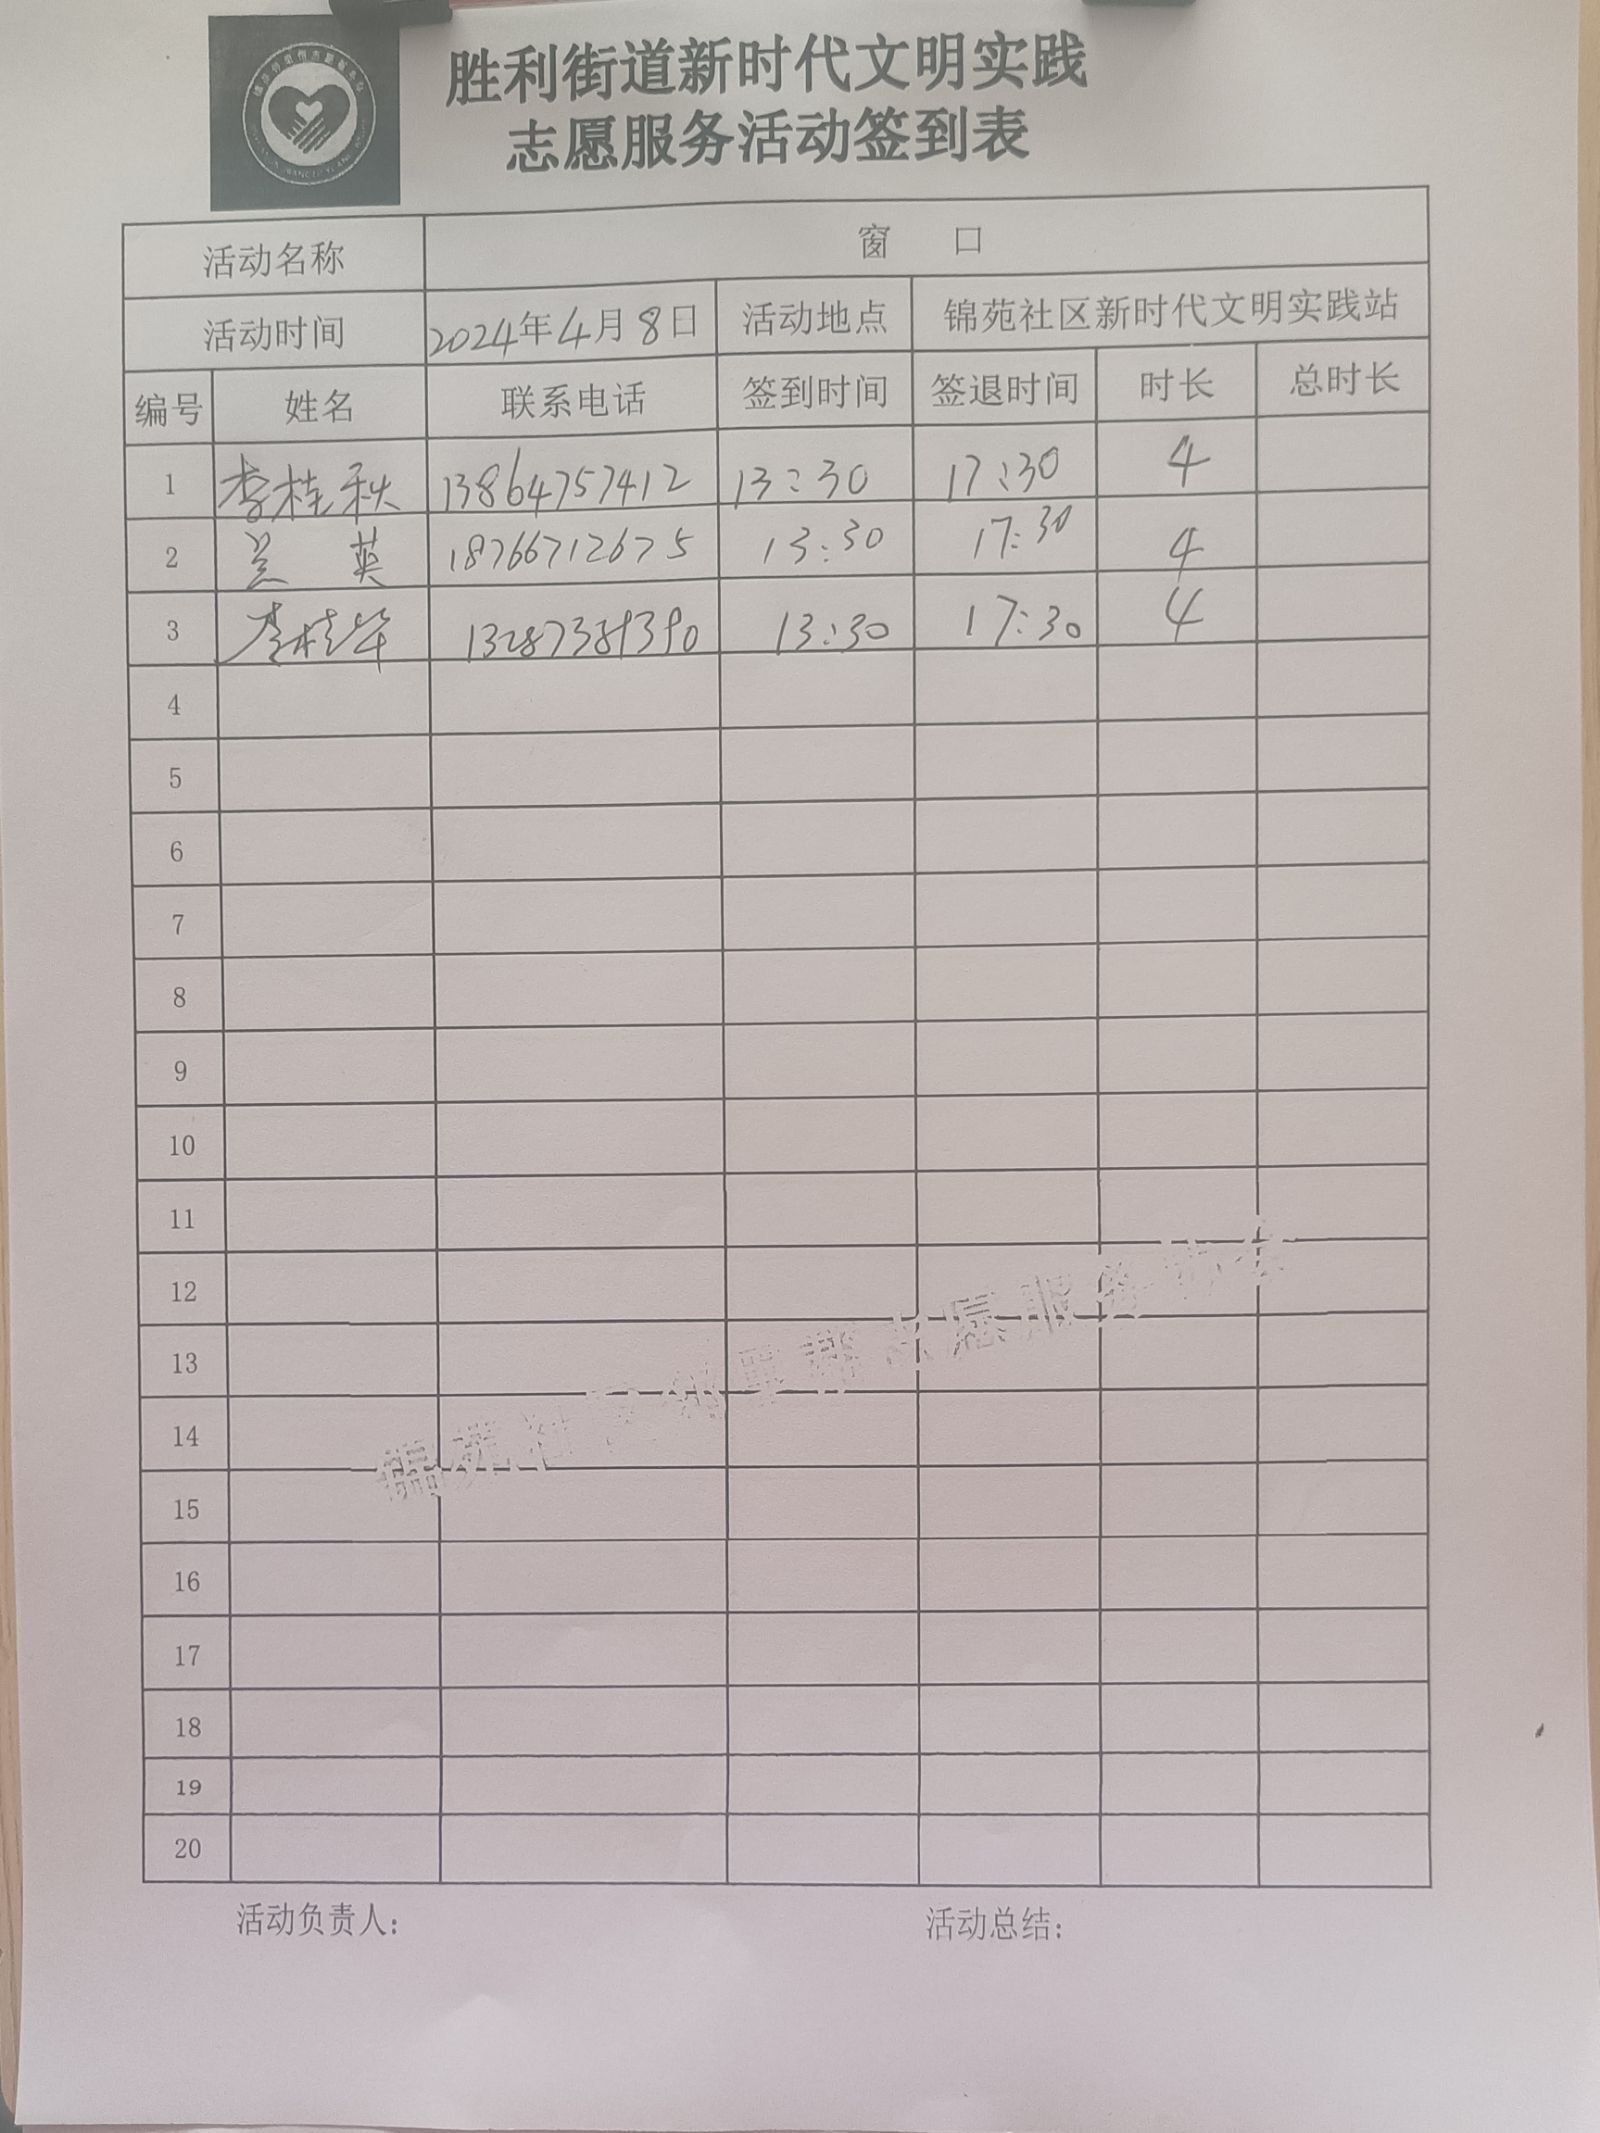 胜利街道新时代文明实践
志愿服务活动签到表
活动名称 窗 口
活动时间 2024年4月8日 活动地点 锦苑社区新时代文明实践站
编号 姓名 联系电话 签到时间 签退时间 时长 总时长
1 李桂秋 13864757412 13:30 17:30 4
2 兰英 18766712675 13:30 17:30 4
3 李桂华 13287389390 13:30 17:30 4
4
5
6
7
8
9
10
11
12
13
14
15
16
17
18
19
20
锦苑社区邻里帮志愿服务
活动负责人: 活动总结: